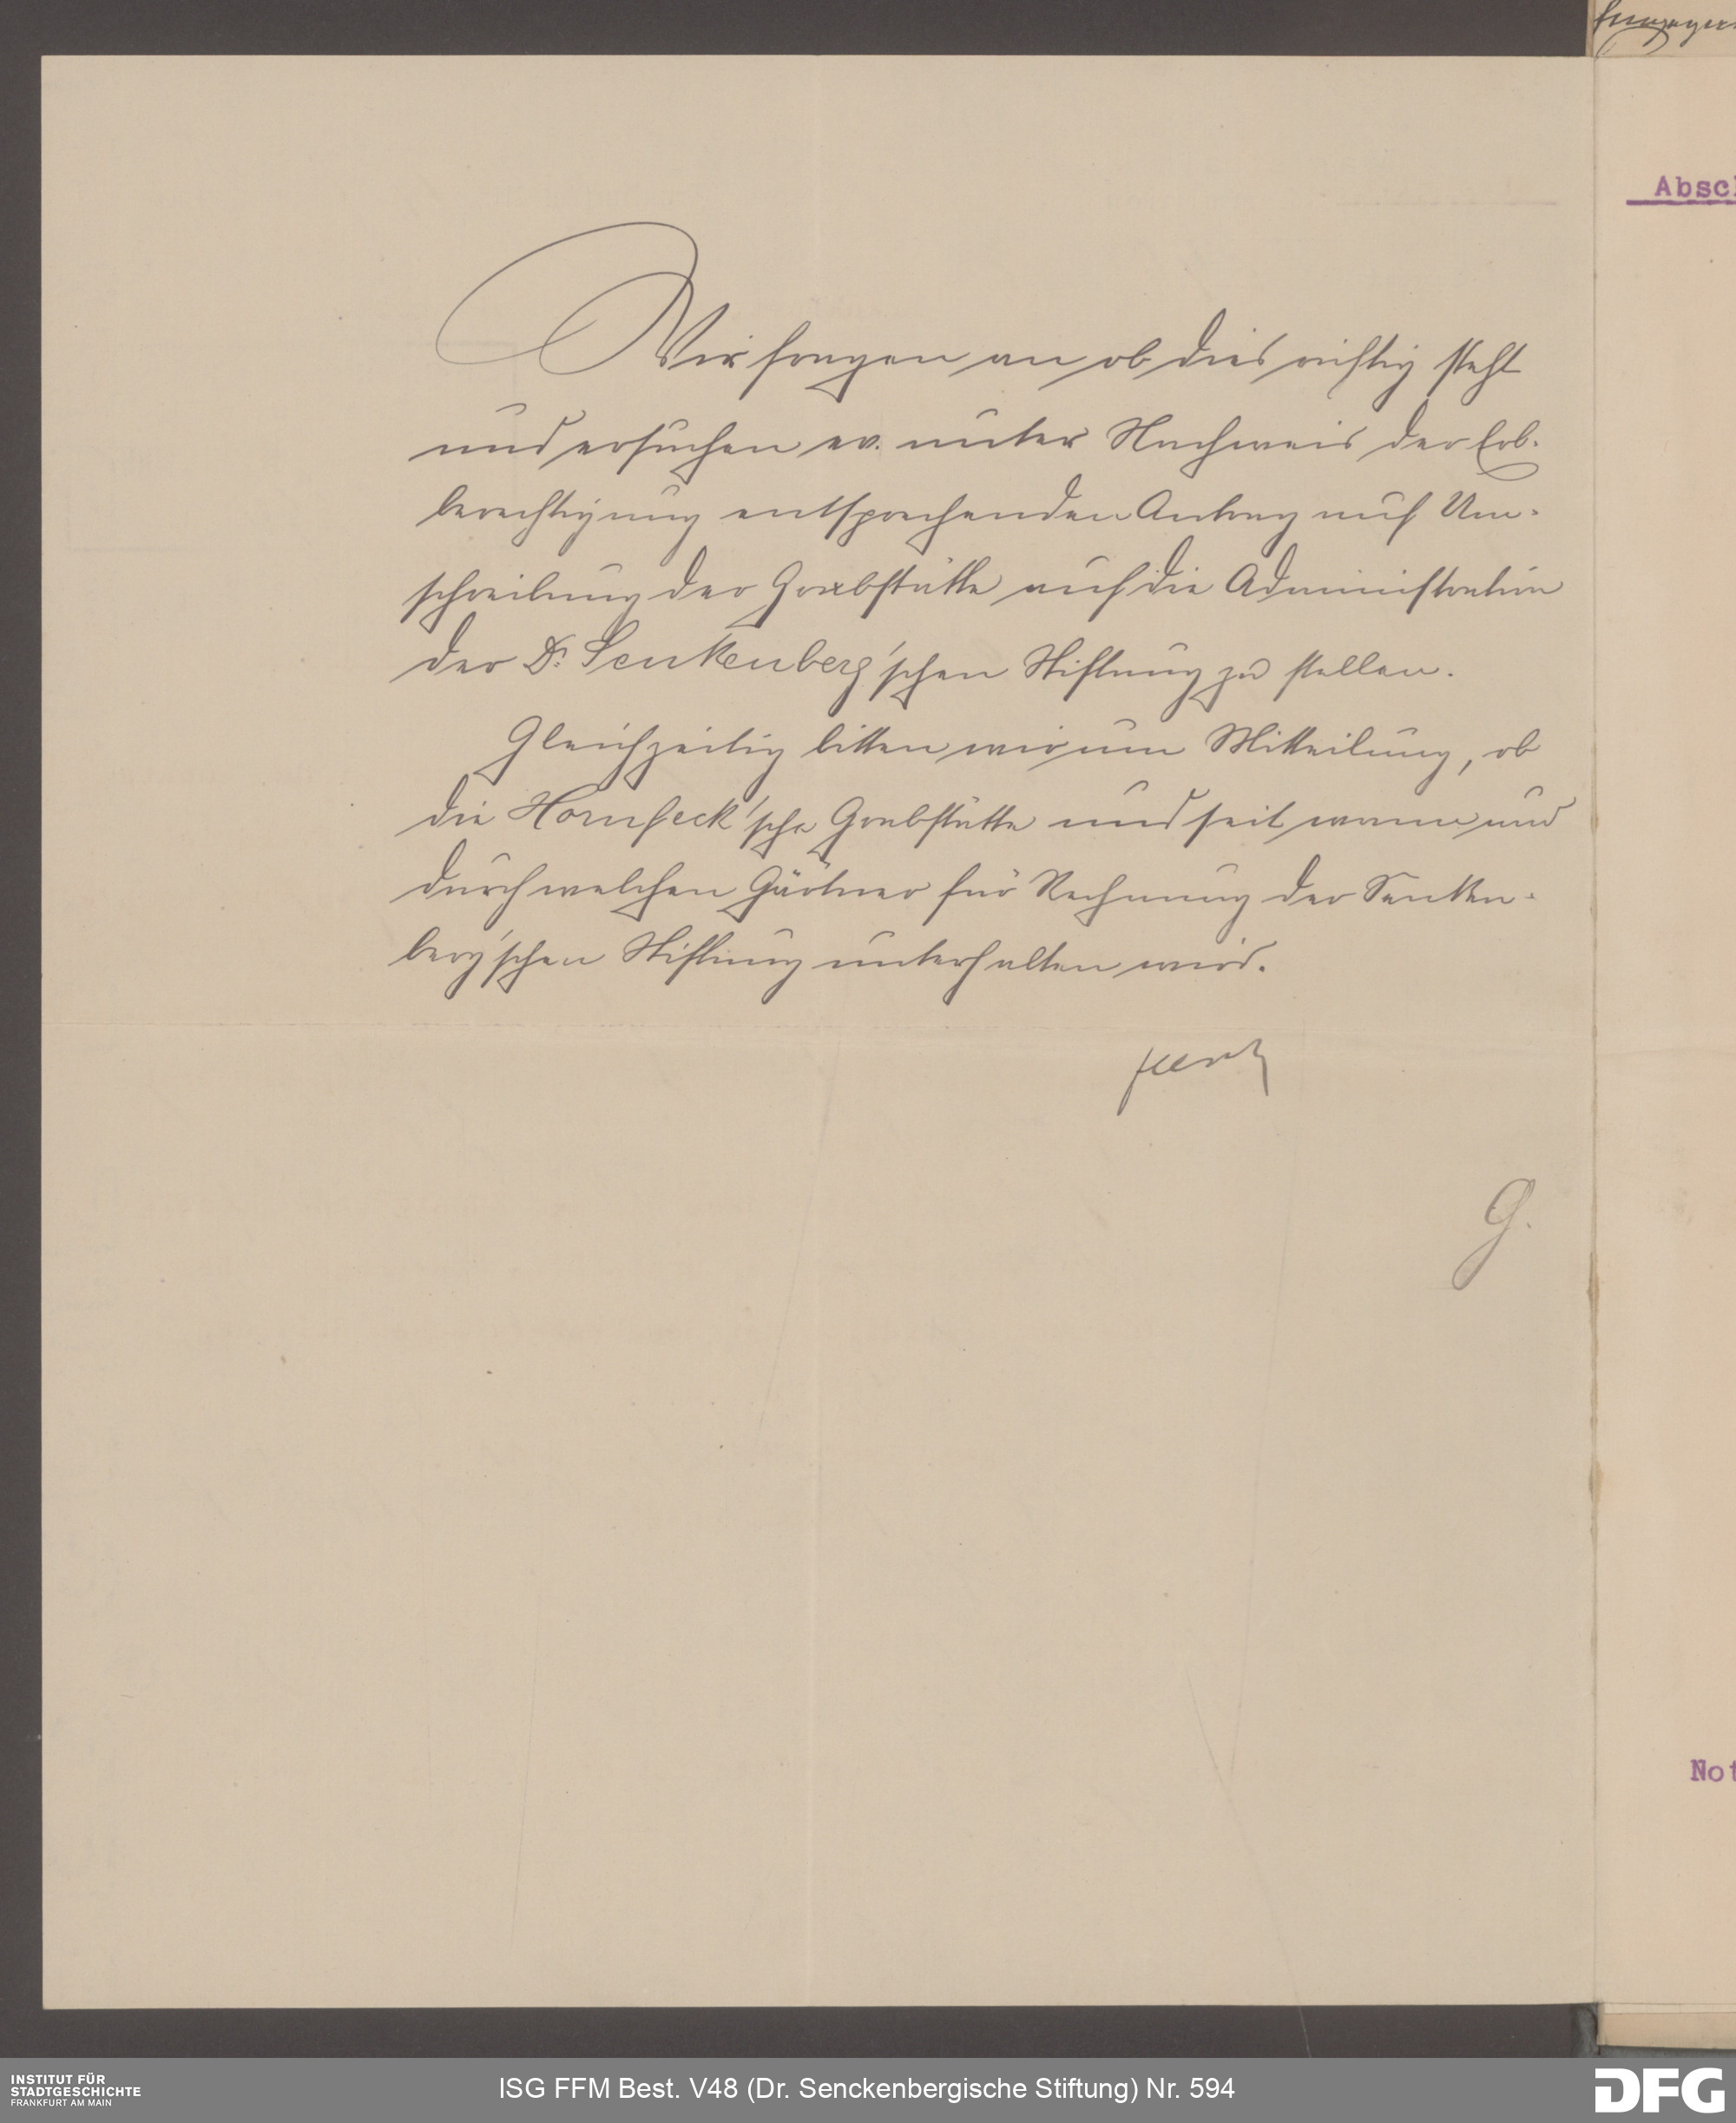 Wir fragen an ob dies richtig steht
und ersuchen ev. unter Nachweis der Erb-
berechtigung entsprechenden Antrag auf Um-
schreibung der Grabstätte auf die Administration
der Dr. Senkenberg'schen Stiftung zu stellen.
Gleichzeitig bitten wir um Mitteilung, ob
die Hornfeck'sche Grabstätte und seit wann und
durch welchen Gärtner für Rechnung der Senken-
berg'schen Stiftung unterhalten wird.
G.
Absc
Not
INSTITUT FÜR
STADTGESCHICHTE
FRANKFURT AM MAIN
ISG FFM Best. V48 (Dr. Senckenbergische Stiftung) Nr. 594
DFG